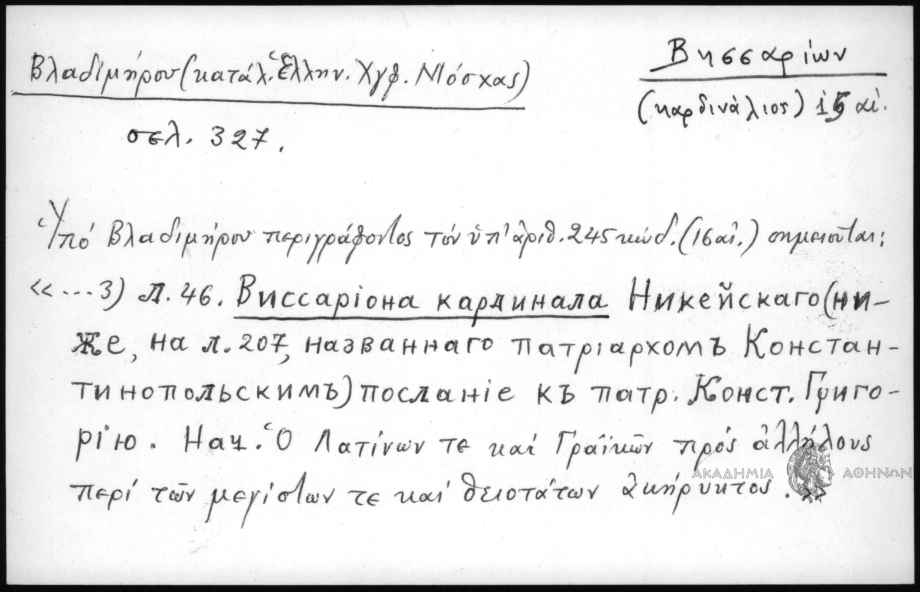 Βησσαρίων
Βλαδιμήρου (κατάλ. Ἑλλην. Χγφ. Μόσχας)
(καρδινάλιος) 15 αἰ.
σελ. 327.
Ὑπό Βλαδιμήρου περιγράφοντος τόν ὑπ' ἀριθ. 245 κώδ. (16 αἰ.) σημειοῦται:
«...3) л. 46. Виссаріона кардинала Никейскаго (ни-
же, на л. 207, названнаго патріархомъ Констан-
тинопольскимъ) посланіе къ патр. Конст. Григо-
рію. Нач. Ὁ Λατίνων τε καί Γραϊκῶν πρός ἀλλήλους
περί τῶν μεγίστων τε και θειοτάτων ἀκήρυκτος. »
ΑΚΑΔΗΜΙΑ ΑΘΗΝΩΝ